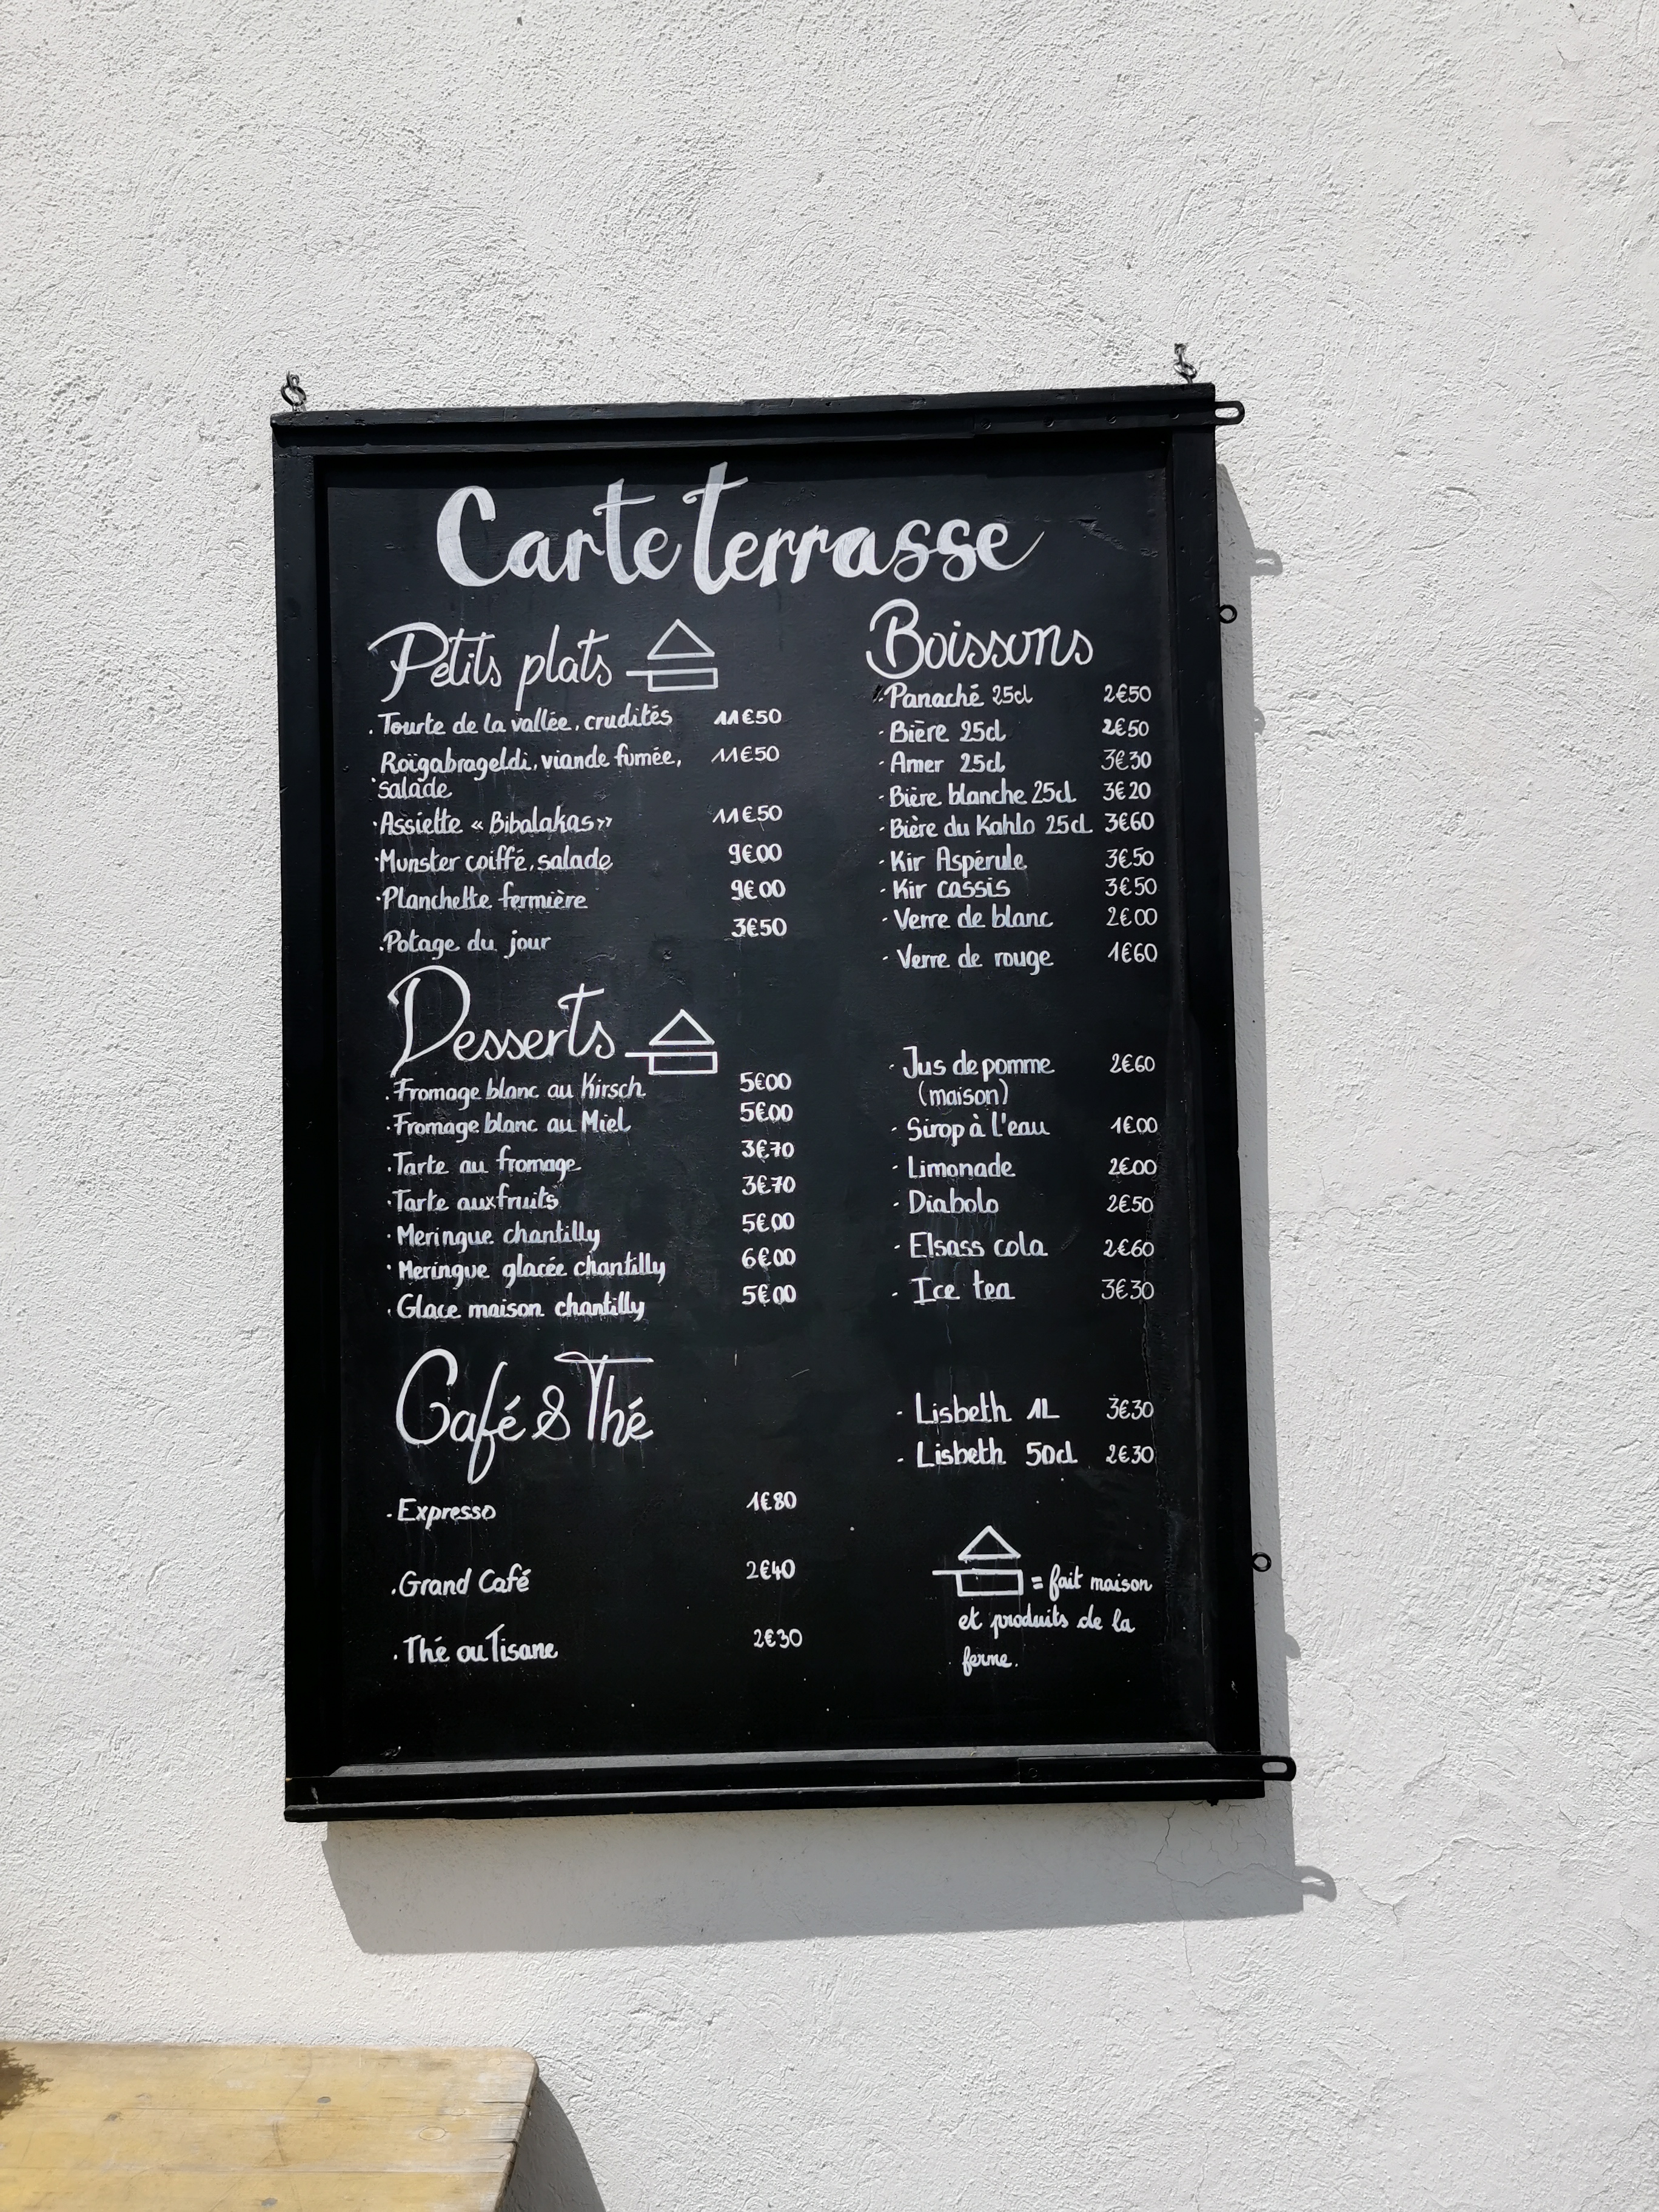 Carte terrasse
Petits plats
. Tourte de la vallée, crudités 11€50
Roïgabrageldi, viande fumée, 11€50
· salade
· Assiette « Bibalakas » 11€50
· Munster coiffé, salade 9€00
· Planchette fermière 9€00
· Potage du jour 3€50
Desserts
. Fromage blanc au Kirsch 5€00
· Fromage blanc au Miel 5€00
· Tarte au fromage 3€70
· Tarte aux fruits 3€70
· Meringue chantilly 5€00
· Meringue glacée chantilly 6€00
· Glace maison chantilly 5€00
Café & Thé
· Expresso 1€80
. Grand Café 2€40
. Thé ou Tisane 2€30
Boissons
· Panaché 25cl 2€50
· Bière 25cl 2€50
· Amer 25cl 3€30
· Bière blanche 25cl 3€20
· Bière du Kahlo 25cl 3€60
· Kir Aspérule 3€50
· Kir cassis 3€50
· Verre de blanc 2€00
· Verre de rouge 1€60
· Jus de pomme 2€60
(maison)
· Sirop à l'eau 1€00
· Limonade 2€00
· Diabolo 2€50
· Elsass cola 2€60
· Ice tea 3€30
· Lisbeth 1L 3€30
· Lisbeth 50cl 2€30
= fait maison
et produits de la
ferme.